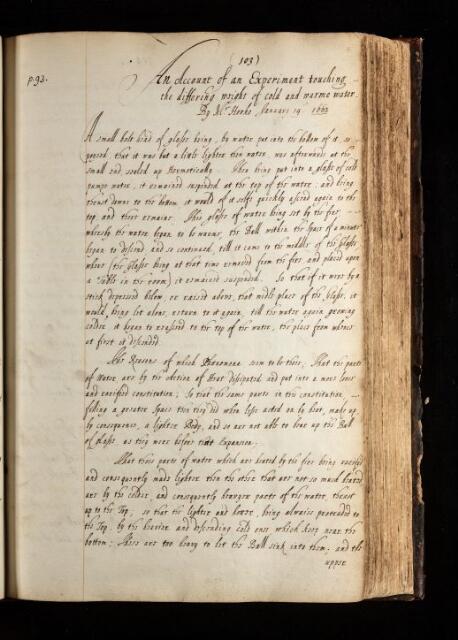 ( 103 )
p. 93.
An Account of an Experiment touching
the differing weight of cold and warme water
By Mr Hooke, January 19. 1662
A small bolt head of glasse being, by water put into the bottom of it, so
poysed, that it was but a little lighter then water, was afterwards at the
small end, sealed up Hermetically. Then being put into a glasse of cold
pumpe water, it remained suspended at the top of the water: and being
thrust downe to the bottom it would of it selfe quickly ascend again to the
top and there remaine. This glasse of water being set by the fire,
whereby the water began to be warme, the Ball within the space of a minute
began to descend and so continued, till it came to the middle of the Glasse
where (the Glasse being at that time removed from the fire and placed upon
a Table in the room) it remained suspended. So that if it were by a
stick depressed below, or raised above, that midle place of the Glasse, it
would, being let alone, return to it again, till the water again growing
colder it began to reascend to the top of the water, the place from whence
at first it descended.
The Reasons of which Phænomena seem to be these; That the parts
of Water are by the action of Heat dissipated and put into a more loose
and rarified constitution; So that the same parts in this constitution,
filling a greater space then they did when lesse acted on by heat, make up
by consequence, a lighter Body, and so are not able to bear up the Ball
of Glasse as they were before that Expansion.
That those parts of water which are heated by the fire being rarefied
and consequently made lighter then the other that are not so much heated
are by the colder, and consequently heavyer parts of the water, thrust
up to the Top; so that the lighter and hotter, being alwaies protruded to
the Top, by the heavier and descending cold ones which keep near the
bottom; These are too heavy to let the Ball sink into them; and the
upper